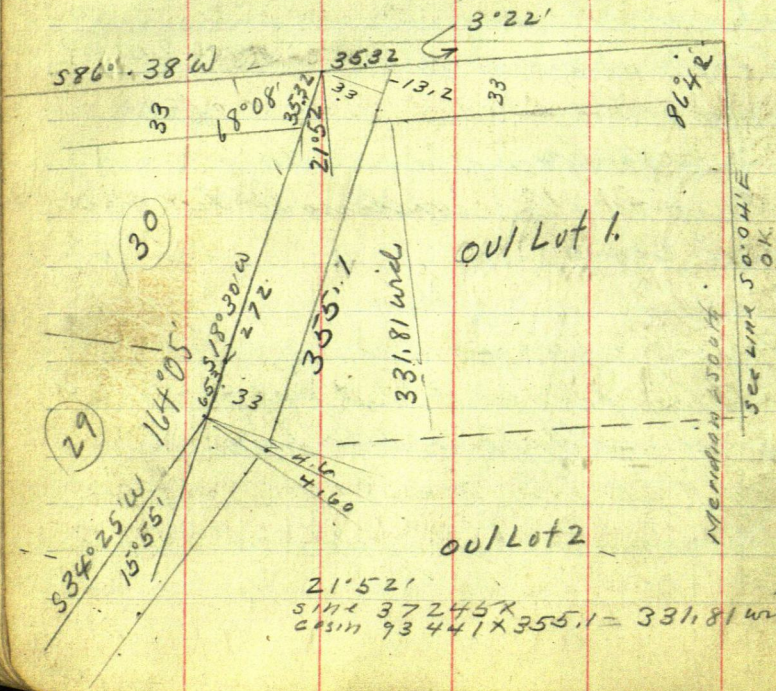 3°22'
S86°.38'W
35.32
33
68°08'
35.32
33
-13,2
33
86°42'
21°52
30
Out Lot 1.
S18°30'W
272
355.1
331.81 wid
See Line S0:04'E
OK.
164°05'
33
29
4.5
4.60
S34°25'W
15°55'
Out Lot 2
21°52'
sine 37245 x
cosin 93441 x 355.1 = 331.81 wi